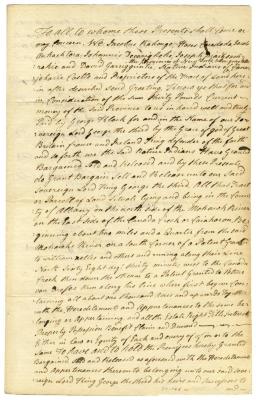 To all to whome these Presents shall come or
may Concern. We
Johannis Joseph
and David of the Province of New York
Castle and Proprietors of the Tract of Land here in
after described Send Greeting. Know ye that for and
in Consideration of the Sum of Twenty Pounds Current
money of the said Province to us in hand well and truly
Paid by George Clark for and in the Name of our So-
vereign Lord George the third by the Grace of god of Great
Britain france and Ireland King defender of the faith
and so forth we the said Native Indians Have Granted
Bargained Sold and Released and by these Presents
do Grant Bargain Sell and Release unto our Said
Sovereign Lord King George the third. All that Tract
or Parcel of Land Scituate Lying and being in the County
of Albany on the north side of the Mohawk River
on the East Side of the Canada Creek or Be-
ginning about two miles and a Quarter from the said
Mohawks River on a south Corner of a Patent Grant'd
to William and others and running along their Line
North Sixty Eight deg thirty minutes west to the Canada
Creek then down the Stream to a Patent Granted to
then along this Line where first begun Con-
taining all about one thousand acres and upwards Together
with the Hereditaments and Appurtenances to the same be-
longing or Appertaining and all the Estate Right Title Interest
Property Possession Benefit Claim and Demand
Either in Law or Equity of Each and every of us to the
Same To have and to hold the Premises hereby Granted
Bargained Sold and Released as aforesaid with the Hereditaments
and Appurtenances thereon to belonging unto our said Sove-
reign Lord King George the third his heirs and Successors to